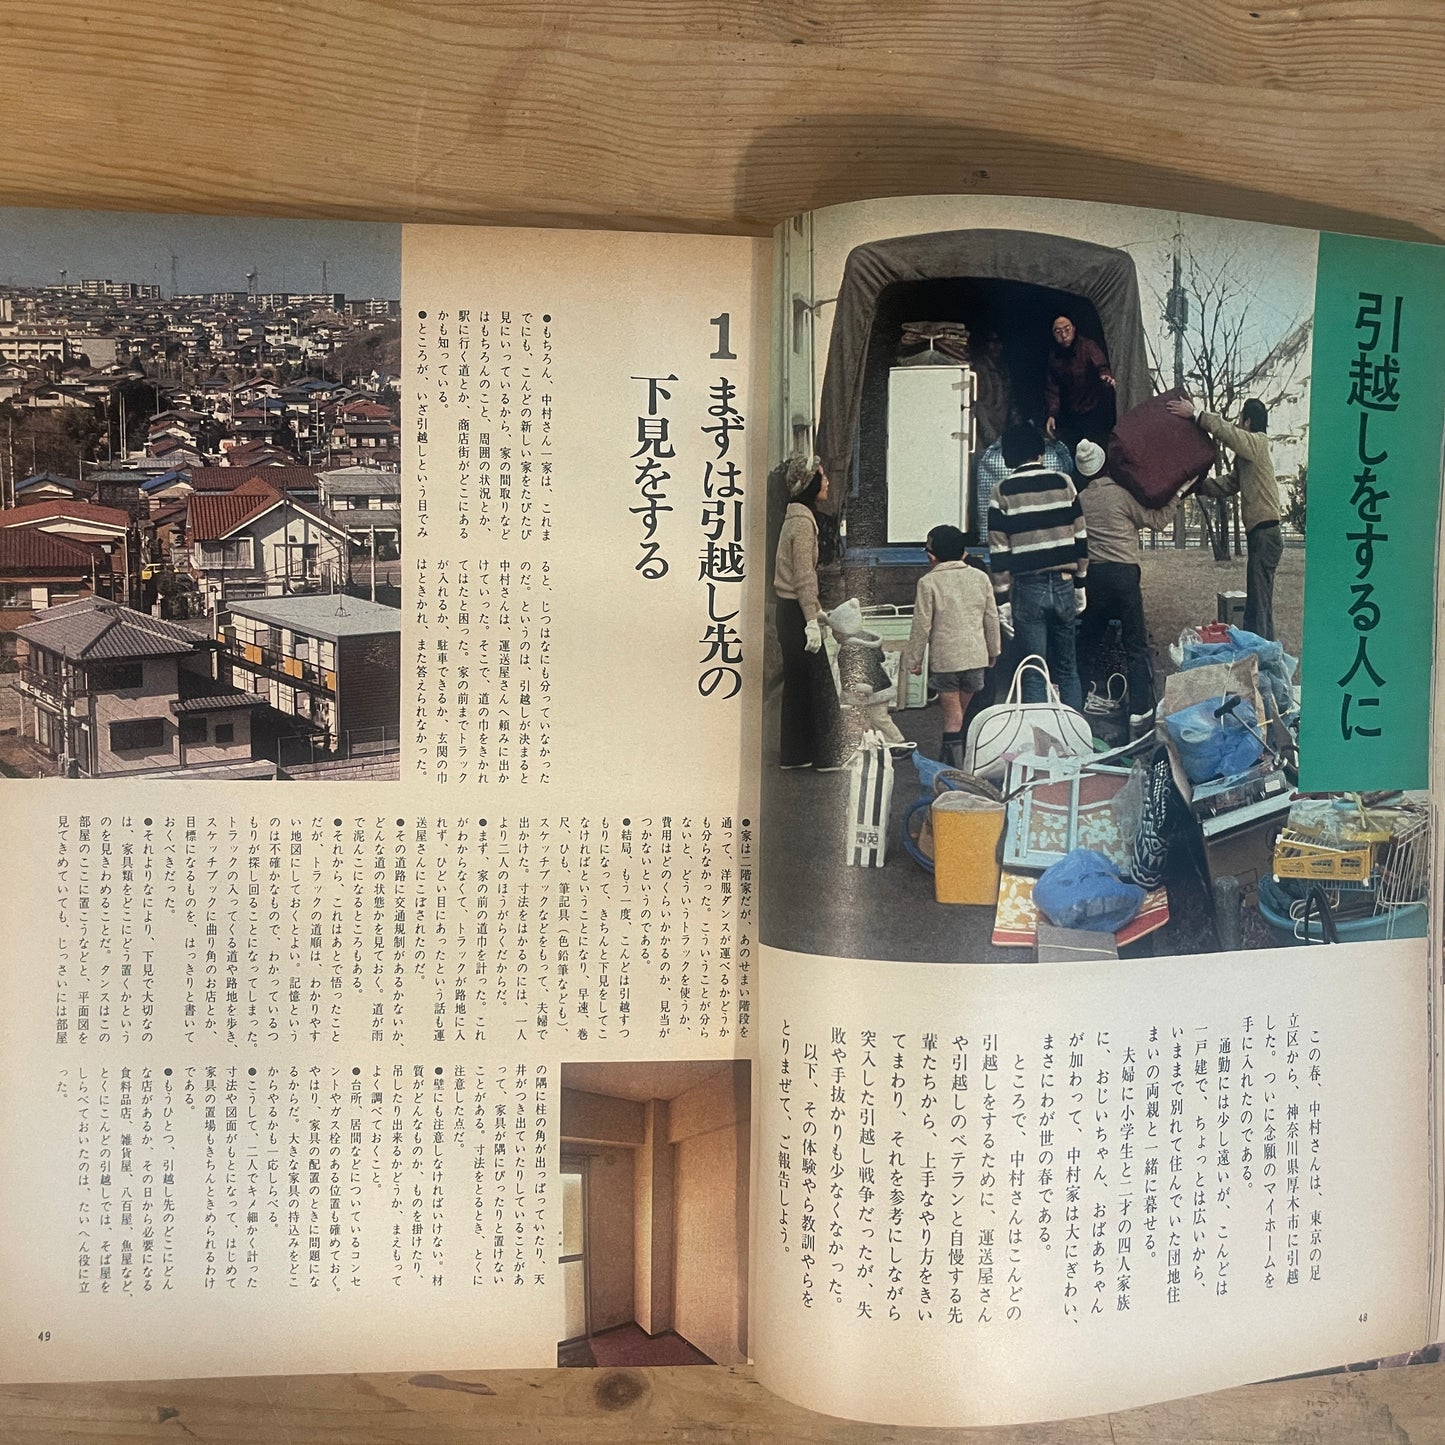 引越しをする人に
この春、中村さんは、東京の足
立区から、神奈川県厚木市に引越
した。ついに念願のマイホームを
手に入れたのである。
通勤には少し遠いが、こんどは
一戸建で、ちょっとは広いから、
いままで別れて住んでいた団地住
まいの両親と一緒に暮せる。
夫婦に小学生と二才の四人家族
に、おじいちゃん、おばあちゃん
が加わって、中村家は大にぎわい、
まさにわが世の春である。
ところで、中村さんはこんどの
引越しをするために、運送屋さん
や引越しのベテランと自慢する先
輩たちから、上手なやり方をきい
てまわり、それを参考にしながら
突入した引越し戦争だったが、失
敗や手抜かりも少なくなかった。
以下、その体験やら教訓やらを
とりまぜて、ご報告しよう。
48
1 まずは引越し先の
下見をする
●もちろん、中村さん一家は、これま
でにも、こんどの新しい家をたびたび
見にいっているから、家の間取りなど
はもちろんのこと、周囲の状況とか、
駅に行く道とか、商店街がどこにある
かも知っている。
●ところが、いざ引越しという目でみ
ると、じつはなにも分っていなかった
のだ。というのは、引越しが決まると
中村さんは、運送屋さんへ頼みに出か
けていった。そこで、道の巾をきかれ
てはたと困った。家の前までトラック
が入れるか、駐車できるか、玄関の巾
はときかれ、また答えられなかった。
●家は二階家だが、あのせまい階段を
通って、洋服ダンスが運べるかどうか
も分らなかった。こういうことが分ら
ないと、どういうトラックを使うか、
費用はどのくらいかかるのか、見当が
つかないというのである。
●結局、もう一度、こんどは引越すつ
もりになって、きちんと下見をしてこ
なければということになり、早速、巻
尺、ひも、筆記具(色鉛筆なども)、
スケッチブックなどをもって、夫婦で
出かけた。寸法をはかるのには、一人
より二人のほうがらくだからだ。
●まず、家の前の道巾を計った。これ
がわからなくて、トラックが路地に入
れず、ひどい目にあったという話も運
送屋さんにこぼされたのだ。
●その道路に交通規制があるかないか、
どんな道の状態かを見ておく。道が雨
で泥んこになるところもある。
●それから、これはあとで悟ったこと
だが、トラックの道順は、わかりやす
い地図にしておくとよい。記憶という
のは不確かなもので、わかっているつ
もりが探し回ることになってしまった。
トラックの入ってくる道や路地を歩き、
スケッチブックに曲り角のお店とか、
目標になるものを、はっきりと書いて
おくべきだった。
●それよりなにより、下見で大切なの
は、家具類をどこにどう置くかという
のを見きわめることだ。タンスはこの
部屋のここに置こうなどと、平面図を
見てきめていても、じっさいには部屋
の隅に柱の角が出っぱっていたり、天
井がつき出ていたりしていることがあ
って、家具が隅にぴったりと置けない
ことがある。寸法をとるとき、とくに
注意した点だ。
●壁にも注意しなければいけない。材
質がどんなものか、ものを掛けたり、
吊したり出来るかどうか、まえもって
よく調べておくこと。
●台所、居間などについているコンセ
ントやガス栓のある位置も確めておく。
やはり、家具の配置のときに問題にな
るからだ。大きな家具の持込みをどこ
からやるかも一応しらべる。
●こうして、二人でキメ細かく計った
寸法や図面がもとになって、はじめて
家具の置場もきちんときめられるわけ
である。
●もうひとつ、引越し先のどこにどん
な店があるか、その日から必要になる
食料品店、雑貨屋、八百屋、魚屋など、
とくにこんどの引越しでは、そば屋を
しらべておいたのは、たいへん役に立
った。
49